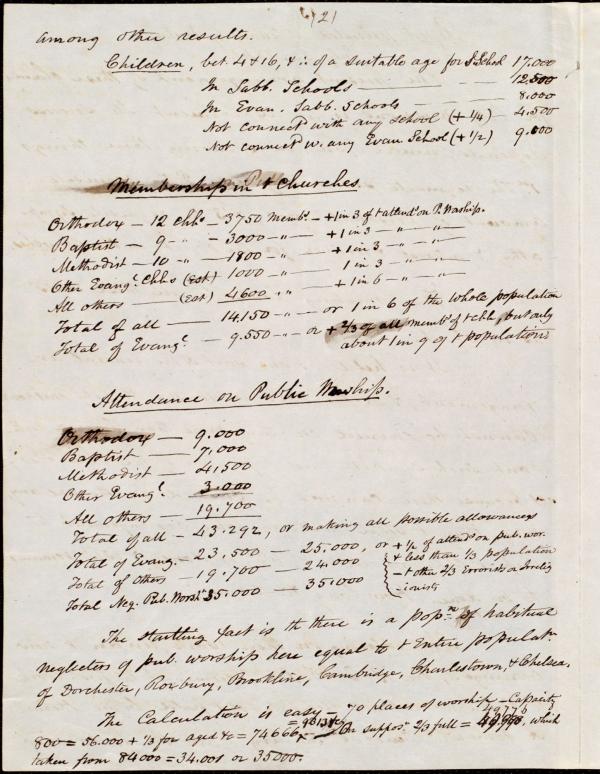 (2)
among other results.
Children, bet. 4 & 16, & ∴ of a suitable age for S. School 17.000
In Sabb. Schools — 12.500
In Evan. Sabb. Schools — 8.000
Not connectd with any school (+ 1/4) — 4.500
Not connectd w. any Evan. School (+ 1/2) 9.000
Membership in + Churches.
Orthodox — 12 Chhs — 3750 Membs. — + 1 in 3 of + attendts on P. Worship.
Baptist — 9 — " — 3000 — " — + 1 in 3 — " — "
Methodist — 10 — " — 1800 — " — + 1 in 3 — " — "
Other Evangl. Chhs (Est) 1000 — " — 1 in 3 — " — "
All others — (Est) 4600 — " — + 1 in 6 — " — "
Total of all — 14.150 — " — or 1 in 6 of the whole population
Total of Evangl. — 9.550 — " — or + 2/3 of all membs. of + chh, but only
about 1 in 9 of + population
Attendance on Public Worship.
Orthodox — 9.000
Baptist — 7,000
Methodist — 4,500
Other Evangl. 3.000
All others — 19.700
Total of all — 43.292, or making all possible allowances
Total of Evang. — 23,500 — 25.000, or + 1/2 of attendts on pub. wor.
& less than 1/3 population
Total of others — 19.700 — 24.000
— + other 2/3 Errorists or Irrelig
ionists
Total Neg. Pub. Worsh. 35.000 — 35.000
The startling fact is th there is a popn. of habitual
neglectors of pub. worship here equal to + Entire populatn.
of Dorchester, Roxbury, Brookline, Cambridge, Charlestown, & Chelsea.
The Calculation is easy — 70 places of worship — Capacity
800 = 56.000 + 1/3 for aged &c = 74666 Or suppos. 2/3 full = 49776 which
taken from 84000 = 34.001 or 35000.